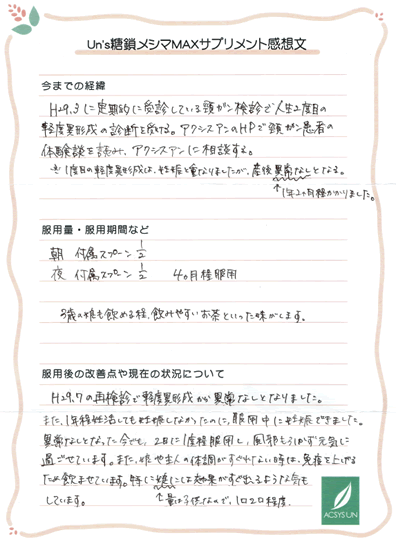 Un's糖鎖メシマMAXサプリメント感想文
今までの経緯
H29.3に定期的に受診している頸ガン検診で人生2度目の
軽度異形成の診断を受ける。アクシスアンのHPで頸ガン患者の
体験談を読み、アクシスアンに相談する。
※1度目の軽度異形成は、妊娠と重なりましたが、産後異常なしとなる。
↑1年2ヶ月程かかりました。
服用量・服用期間など
朝 付属スプーン 1/2
夜 付属スプーン 1/2 4ヶ月程服用
3歳の娘も飲める程、飲みやすいお茶といった味がします。
服用後の改善点や現在の状況について
H29.7の再検診で軽度異形成が異常なしとなりました。
また、1年程妊活しても妊娠しなかったのに、服用中に妊娠できました。
異常なしとなった今でも、2日に1度程服用し、風邪もひかず元気に
過ごせています。また、娘や主人の体調がすぐれない時は、免疫を上げる
ため飲ませています。特に娘には効果がすぐ出るような気も
しています。
↑量は子供なので、1日2口程度。
ACSYSUN